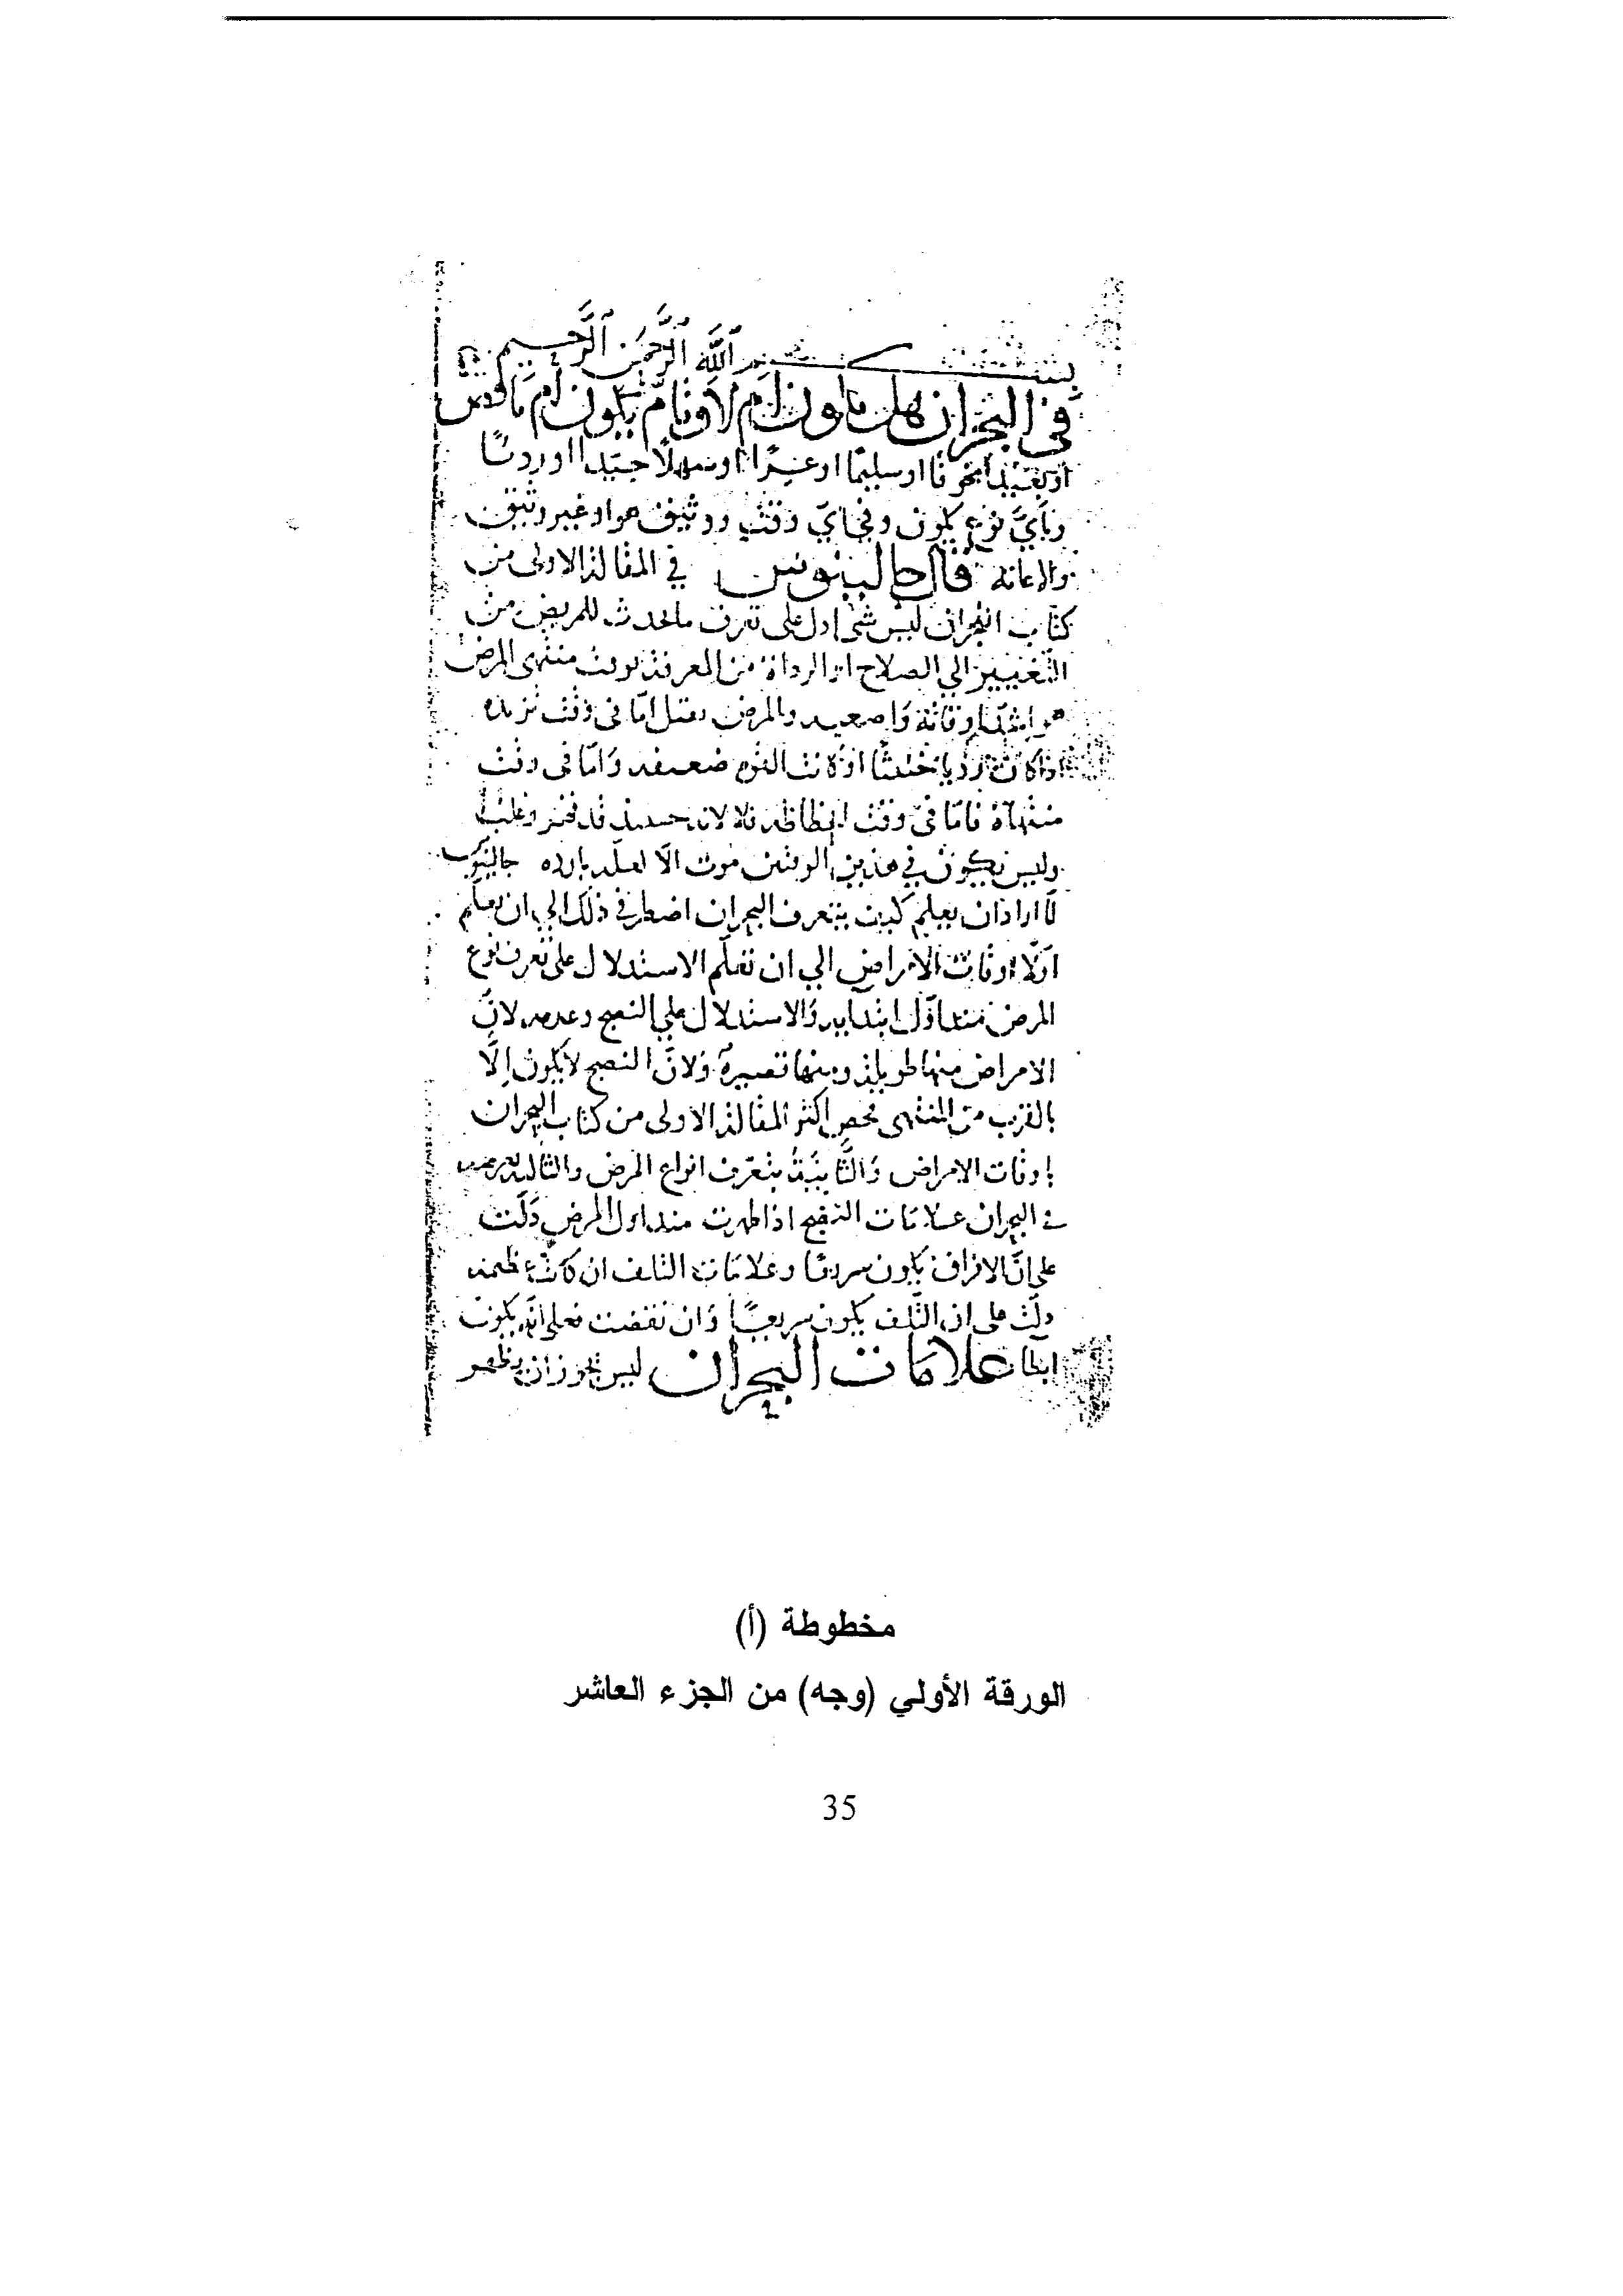 بسم الله الرحمن الرحيم
في البحران هل يكون ام لا وتام يكون ام ناقص
او بعيدا مخوفا او سليما او عسرا او سهلا جيدا او رديا
وباي نوع يكون وفي اي وقت ووثيق هو او غير وثيق
قال جالينوس في المقالة الاولى من
كتاب البحران ليس شي ادل على تعرف ما يحدث للمريض من
التغيير الي الصلاح او الرداة من المعرفة بوقت منتهى المرض
والمرض يقتل اما في وقت تزيده
اذا كان رديا خبيثا او كانت القوه ضعيفه واما في وقت
منتهاه فاما في وقت انحطاطه فلا لانه حينيذ قد فتر وغلب
وليس يكون في هذين الوقتين موت الا لعله بارده جالينوس
لما اراد ان يعلم كيف يتعرف البحران اضطر في ذلك الي ان يعلم
اولا اوقات الامراض الي ان تعلم الاستدلال على تعرف نوع
المرض منذ اول ابتدايه والاستدلال علي النضج وعدمه لان
الامراض منها طويلة ومنها قصيرة ولان النضج لا يكون الا
بالقرب من المنتهى فحص اكثر المقالة الاولى من كتاب البحران
باوقات الامراض والثانية بتعرف انواع المرض والثالثة
في البحران علامات النضج اذا ظهرت منذ اول المرض دلت
على ان الافراق يكون سريعا وعلامات التلف ان كانت عظيمة
دلت على ان التلف يكون سريعا وان نقصت فعلى انه يكون
ابطا علامات البحران ليس يجوز ان يظهر
مخطوطة (أ)
الورقة الأولي (وجه) من الجزء العاشر
35